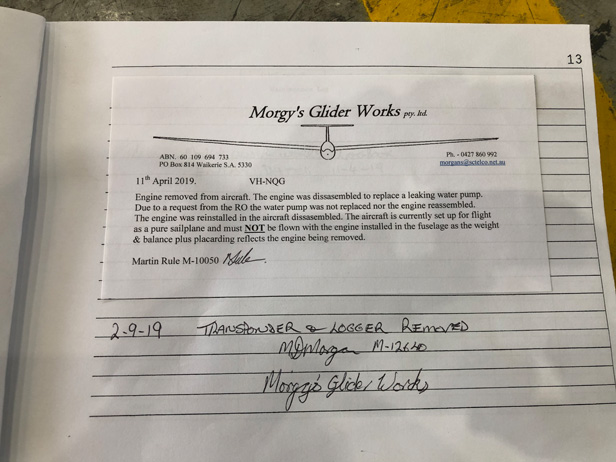 13
Morgy's Glider Works pty. ltd.
ABN. 60 109 694 733
PO Box 814 Waikerie S.A. 5330
Ph. - 0427 860 992
morgans@sctelco.net.au
11th April 2019. VH-NQG
Engine removed from aircraft. The engine was dissasembled to replace a leaking water pump.
Due to a request from the RO the water pump was not replaced nor the engine reassembled.
The engine was reinstalled in the aircraft dissasembled. The aircraft is currently set up for flight
as a pure sailplane and must NOT be flown with the engine installed in the fuselage as the weight
& balance plus placarding reflects the engine being removed.
Martin Rule M-10050
2-9-19 TRANSPONDER & LOGGER REMOVED
MDMorgan
Morgy's Glider Works